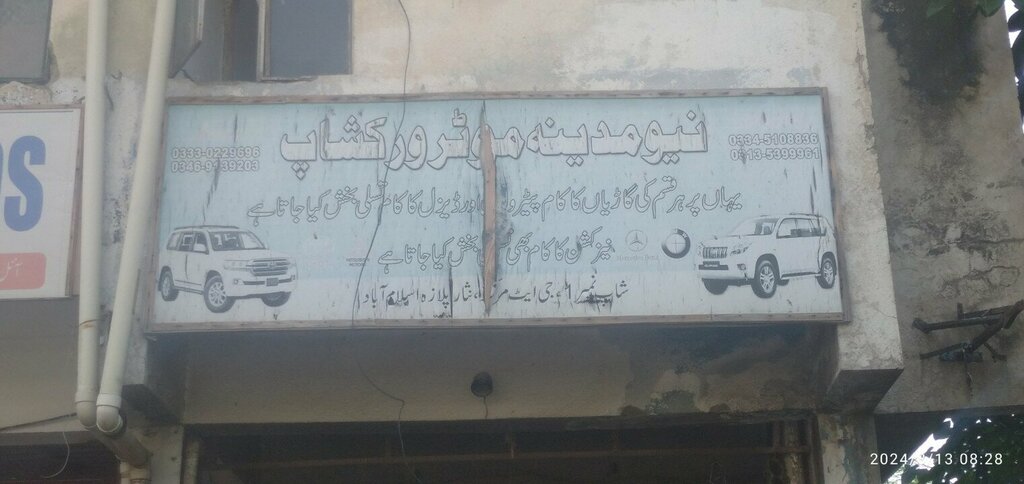 نیو مدینہ موٹر ورکشاپ
0334-5108836
0313-5399961
0333-0229696
0346-9139203
یہاں پر ہر قسم کی گاڑیاں کا کام پیٹرول اور ڈیزل کا کام تسلی بخش کیا جاتا ہے
نیز کشن کا کام بھی تسلی بخش کیا جاتا ہے
Mercedes-Benz
شاپ نمبر جی ایٹ مرکز نثار پلازہ اسلام آباد
DS
2024/ /13 08:28